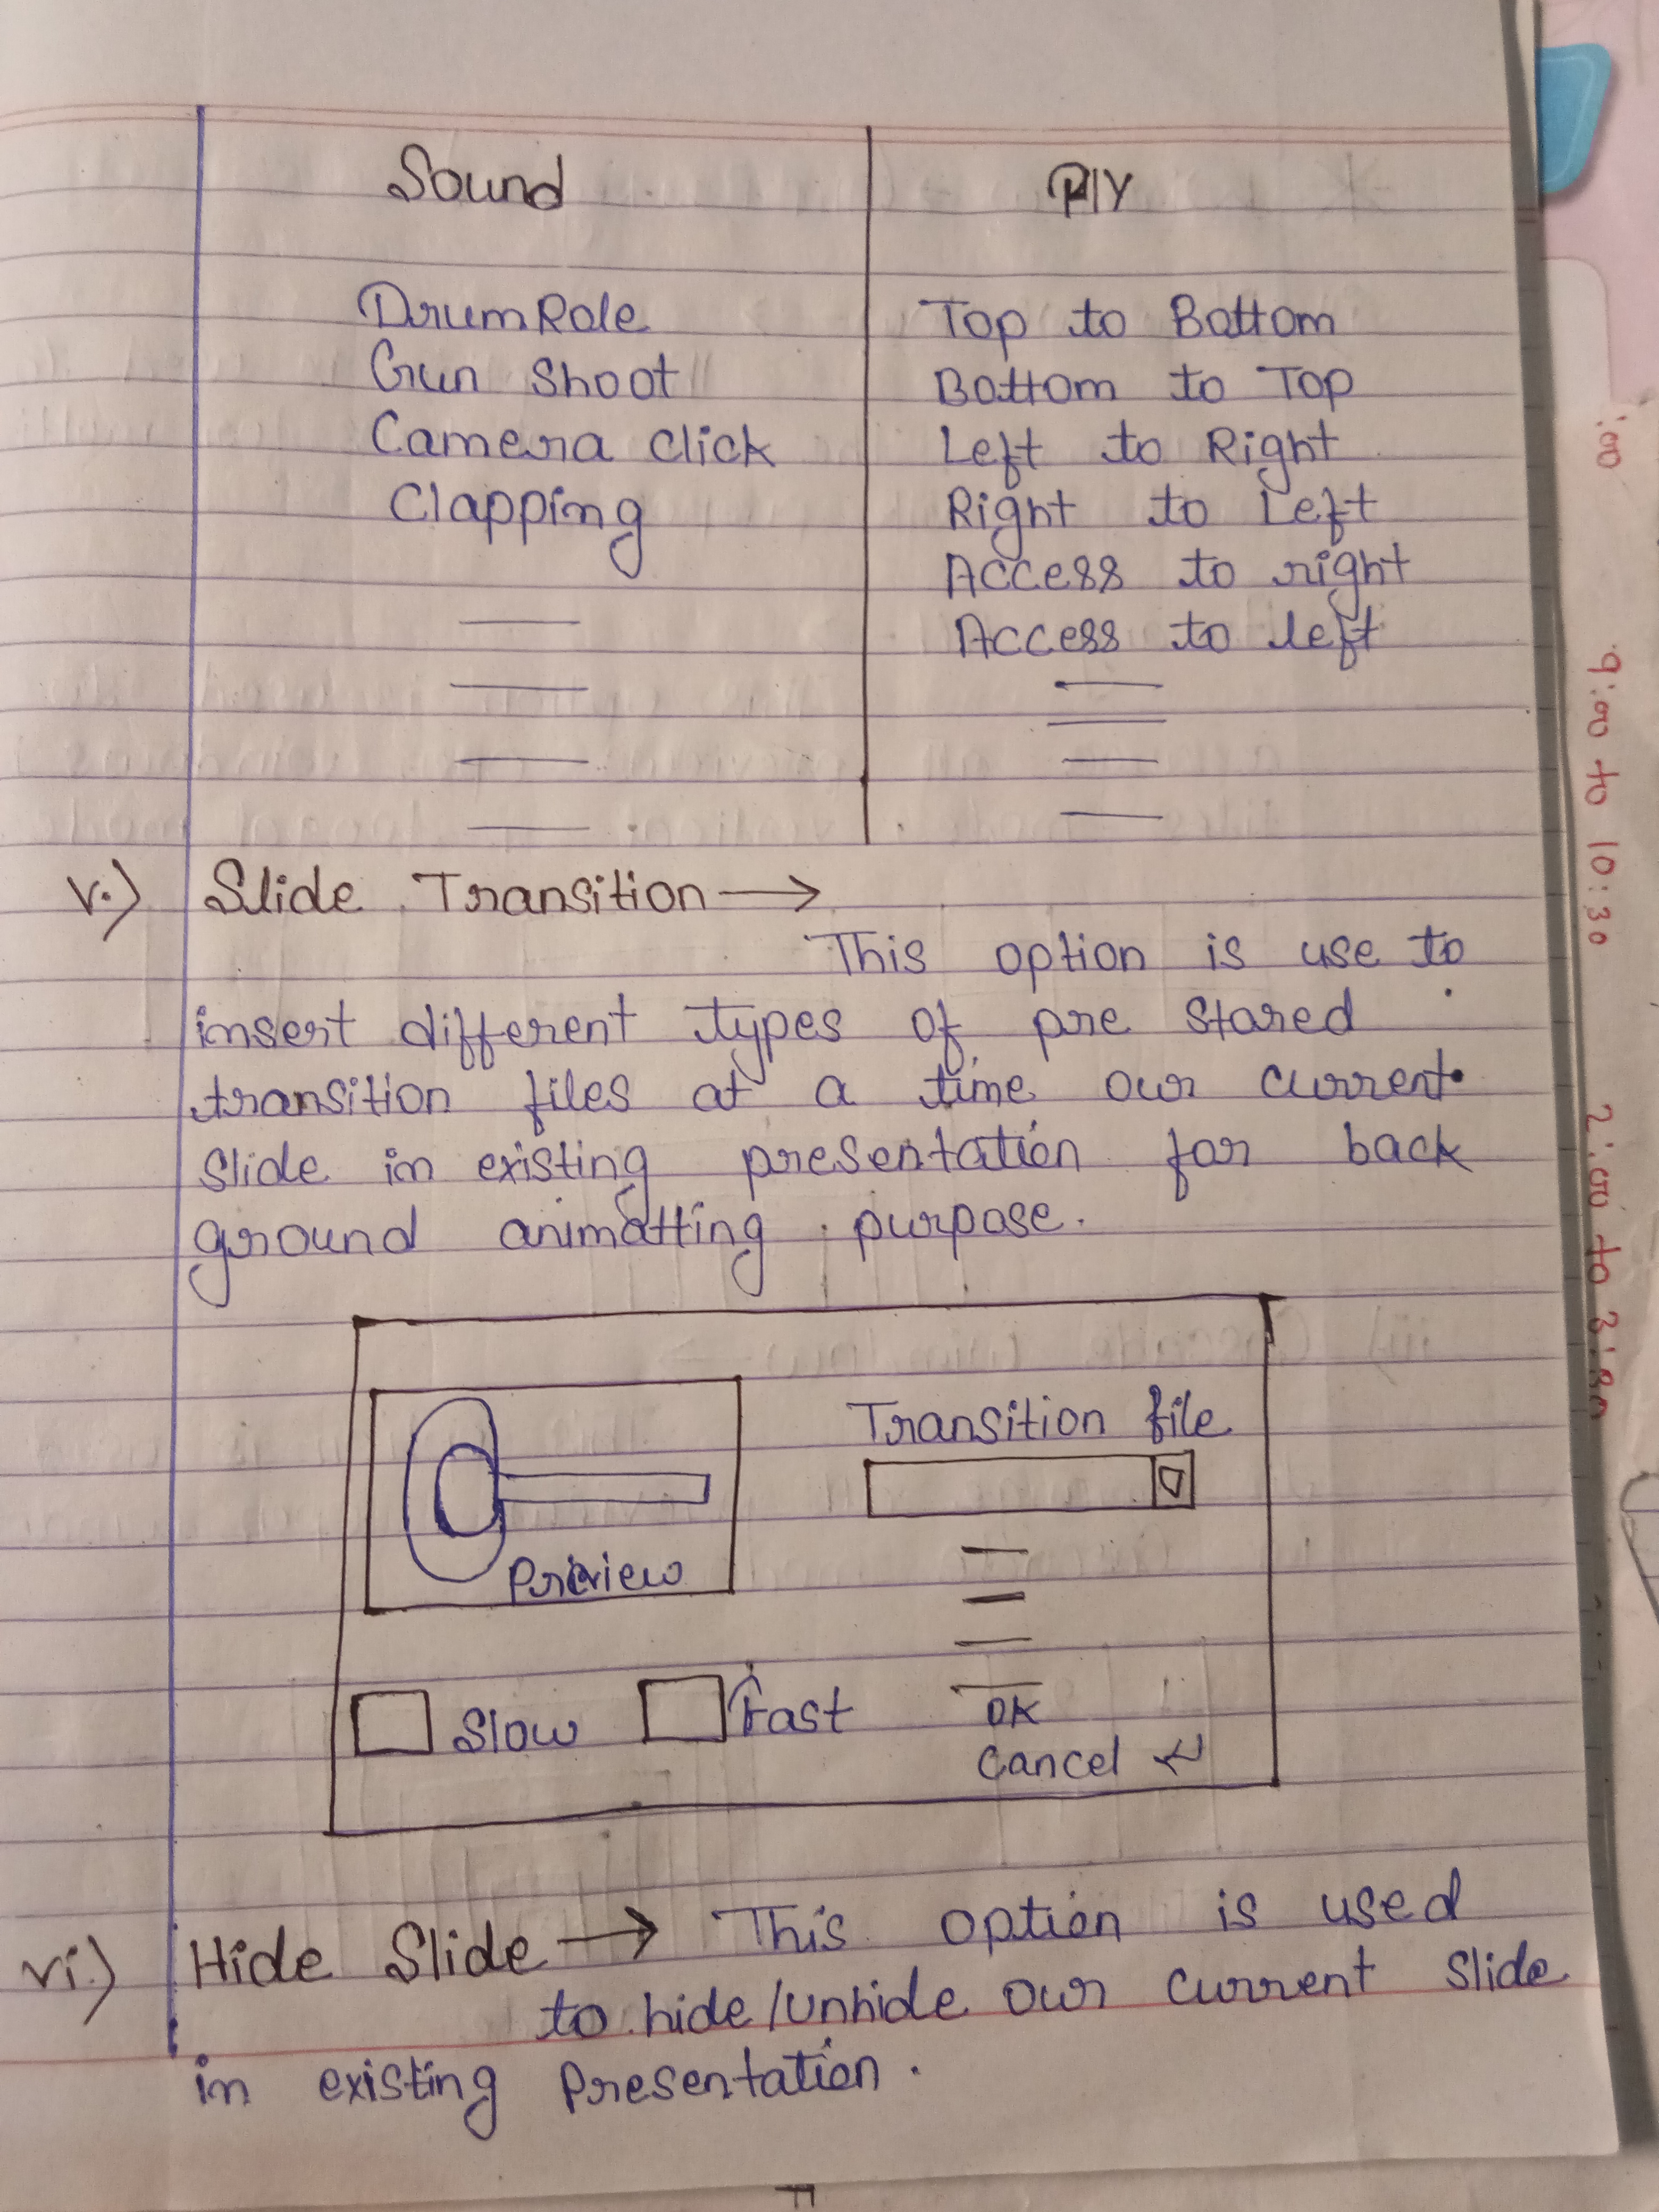 Sound
Fly
DrumRole
Top to Bottom
Gun Shoot
Bottom to Top
Camera Click
Left to Right
Clapping
Right to Left
Access to right
Access to left
v.) Slide Transition →
This option is use to
insert different types of pre stored
transition files at a time our current
slide in existing presentation for back
ground animatting purpose.
Transition file
Preview
Slow
Fast
OK
Cancel
vi) Hide Slide → This option is used
to hide/unhide our current slide
in existing Presentation.
:00
9:00 to 10:30
2:00 to 3:30